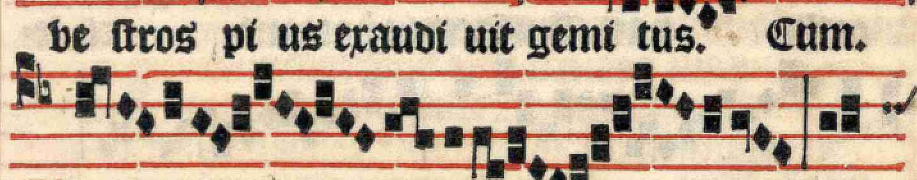 ve ſtros pi us exaudi uit gemi tus. Cum.